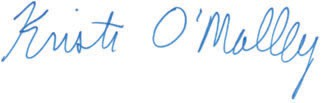 Kristi O'Malley